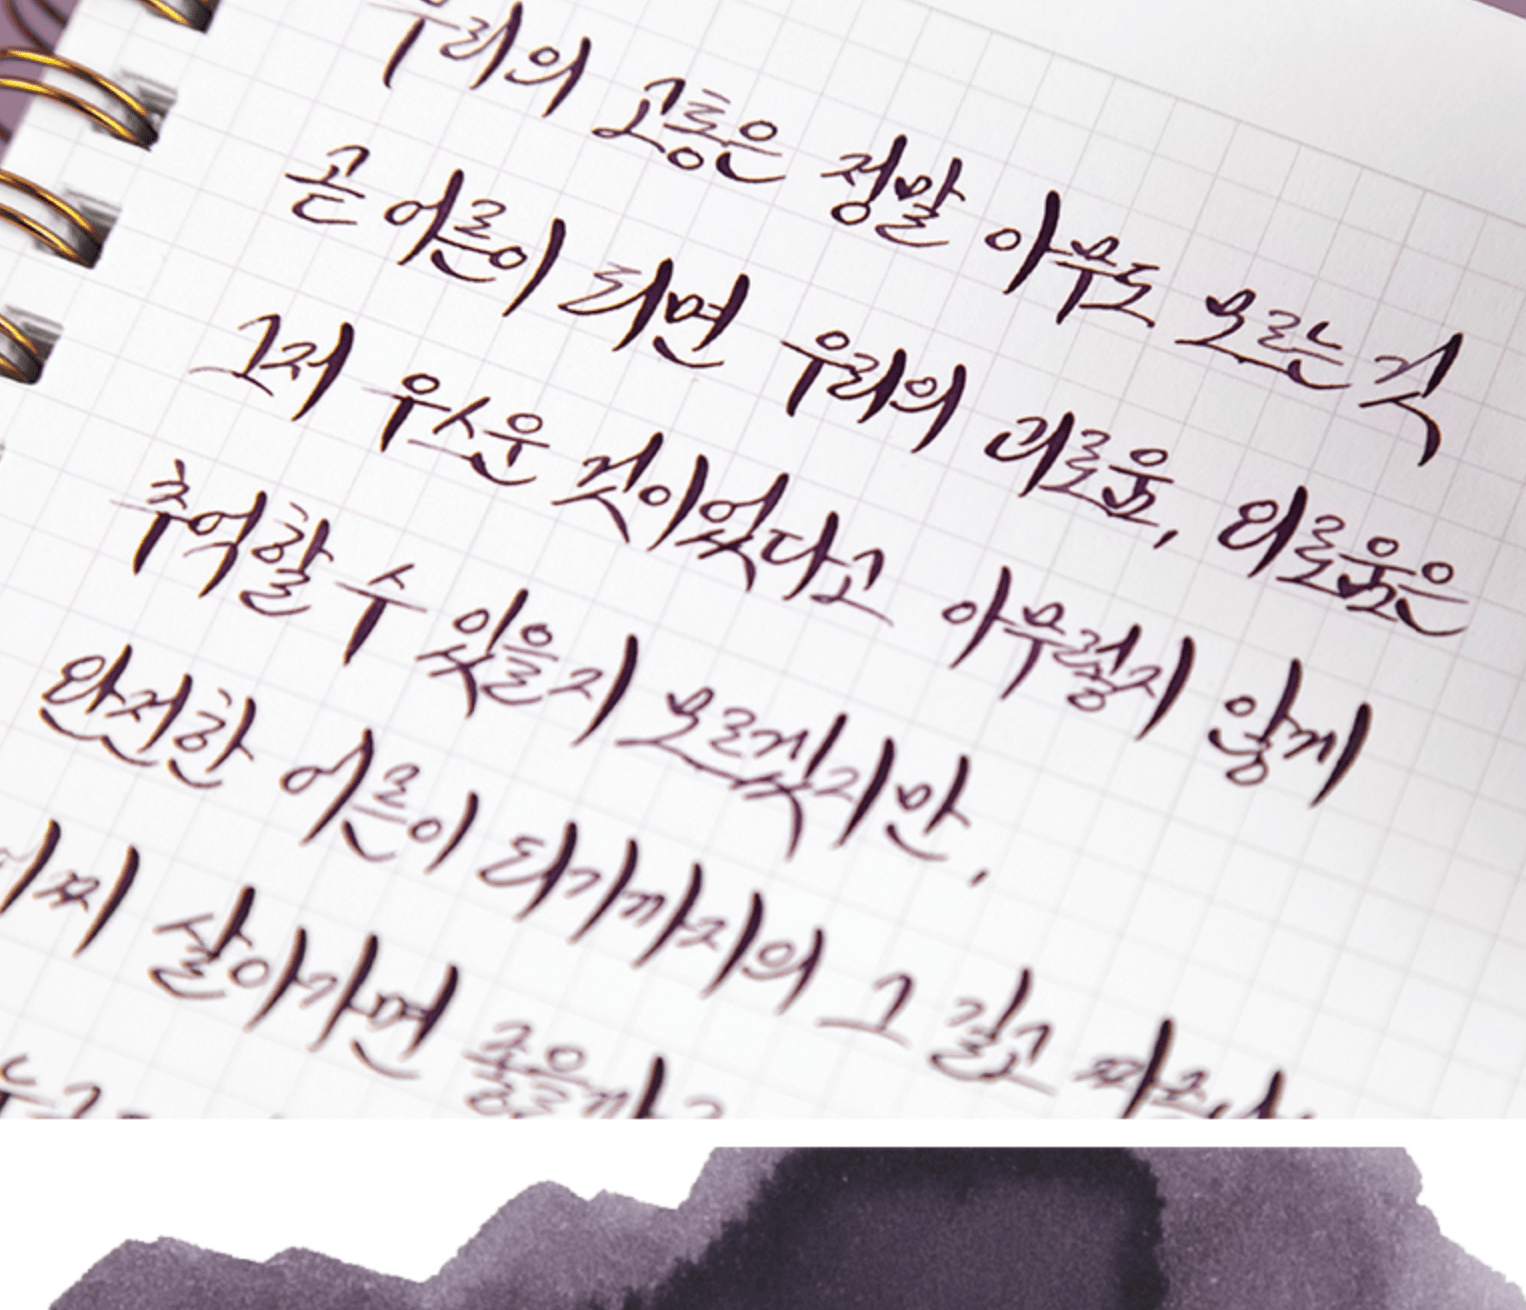 우리의 고통은 정말 아무도 모르는 것
곧 어른이 되면 우리의 괴로움, 외로움은
그저 우스운 것이었다고 아무렇지 않게
추억할 수 있을지 모르겠지만,
완전한 어른이 되기까지의 그 길고
어찌 살아가면 좋을까